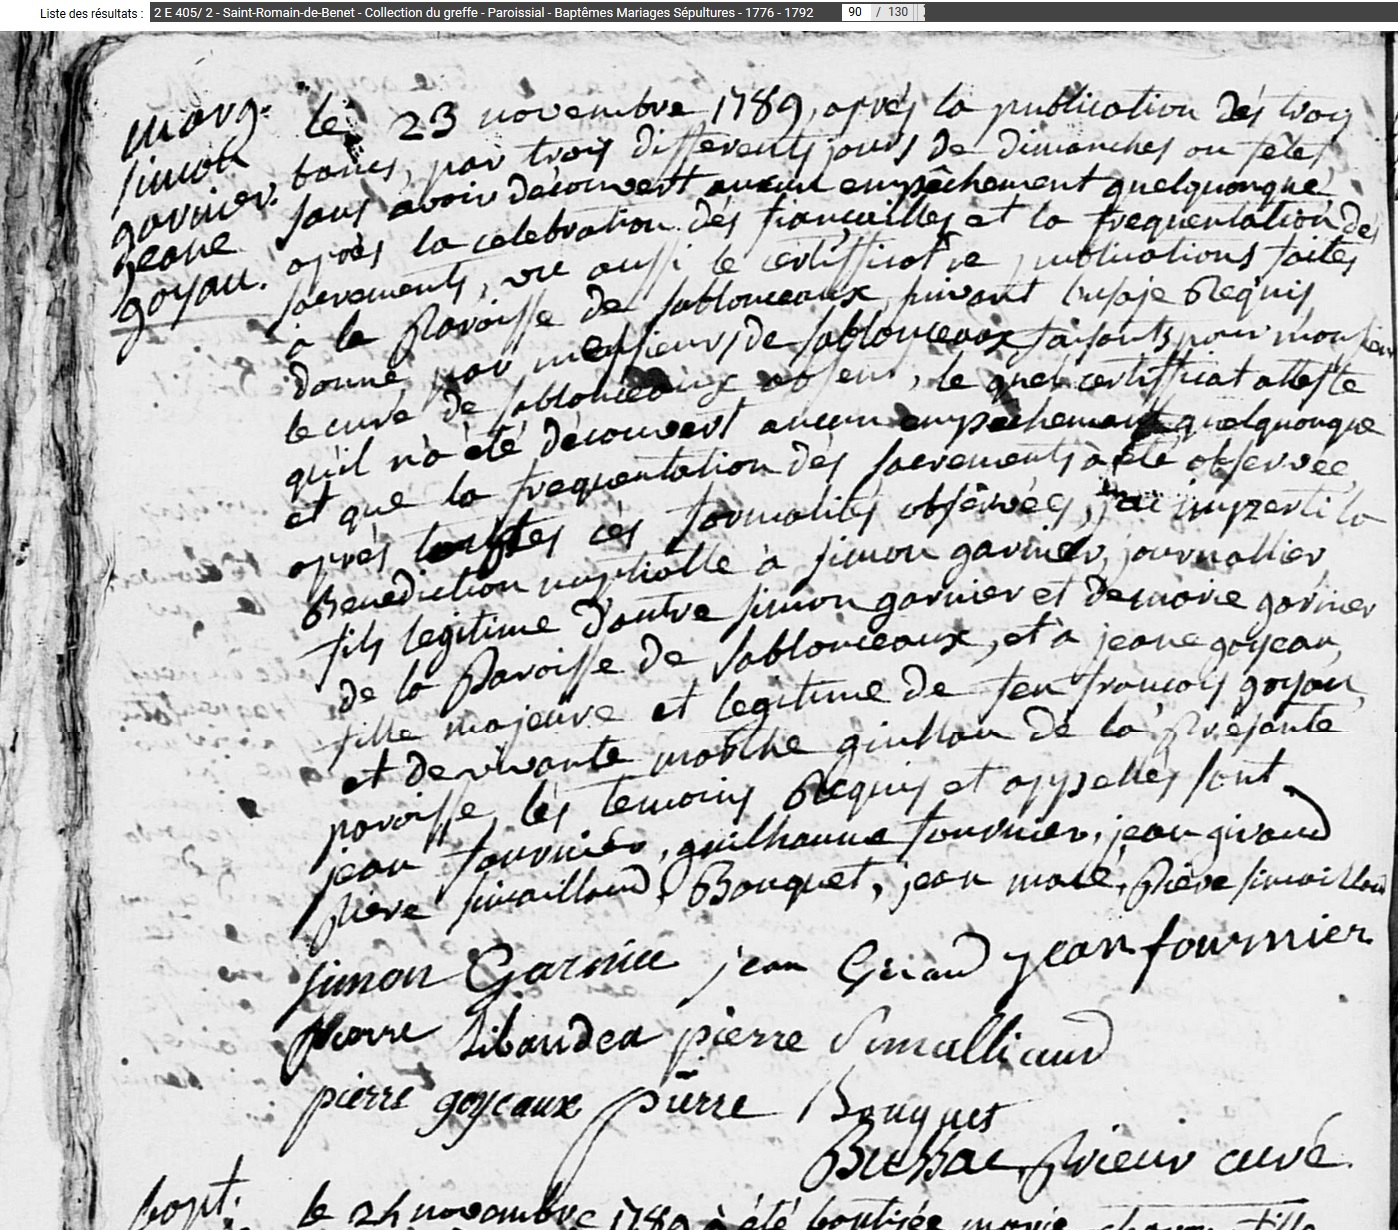 Liste des résultats : 2 E 405/ 2 - Saint-Romain-de-Benet - Collection du greffe - Paroissial - Baptêmes Mariages Sépultures - 1776 - 1792 90 / 130
marg.
simon
garnier.
jeane
goyau.
le 23 novembre 1789, aprés la publication dés trois
bancs, par trois differents jours de dimanches ou fêtes
sans avoir découvert aucun empêchement quelquonque
aprés la celebration dés fiançailles et la frequentation dés
sacrements, vu aussi le certifficat de publications faites
à la Paroisse de sablonceaux suivant l'usage Requis
donné par messieurs de sablonceaux faisants pour monsieur
le curé de sablonceaux absent, le quel certifficat atteste
qu'il n'a été découvert aucun empêchement quelquonque
et que la frequentation dés sacrements a été observée,
aprés toutes cés formalités obsérvées, j'ai imparti la
Benediction nuptialle à simon garnier, journallier,
fils legitime d'autre simon garnier et de marie garnier
de la Paroisse de sablonceaux, et à jeane goyeau,
fille majeure et legitime de feu françois goyau,
et de vivante marthe guillau de la présante
paroisse, lés temoins Requis et appellés sont
jean fournier, guilhaume fournier, jean giraud
Piere simaillaud, Bouquet, jean malé, Piere simaillaud
simon Garnier jean Giraud jean fournier
pierre Ribaudea pierre Simalliaud
pierre goyeaux pierre Bouquet
Bussac Prieur curé.
bapt. le 24 novembre 1789 à été baptisée marie